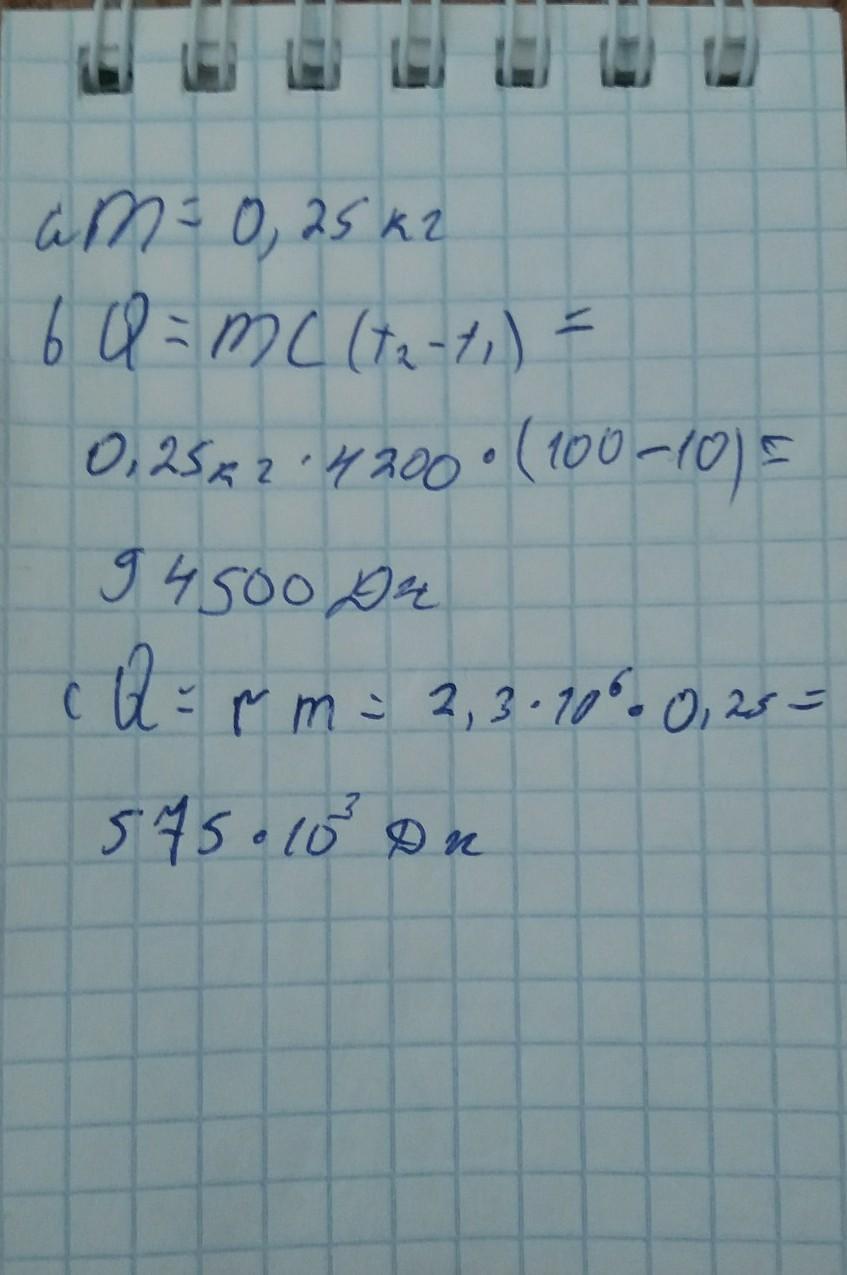 a m = 0,25 кг
b Q = mc (t₂-t₁) =
0,25кг · 4200 · (100-10) =
94500 Дж
c Q = r m = 2,3 · 10⁶ · 0,25 =
575 · 10³ Дж